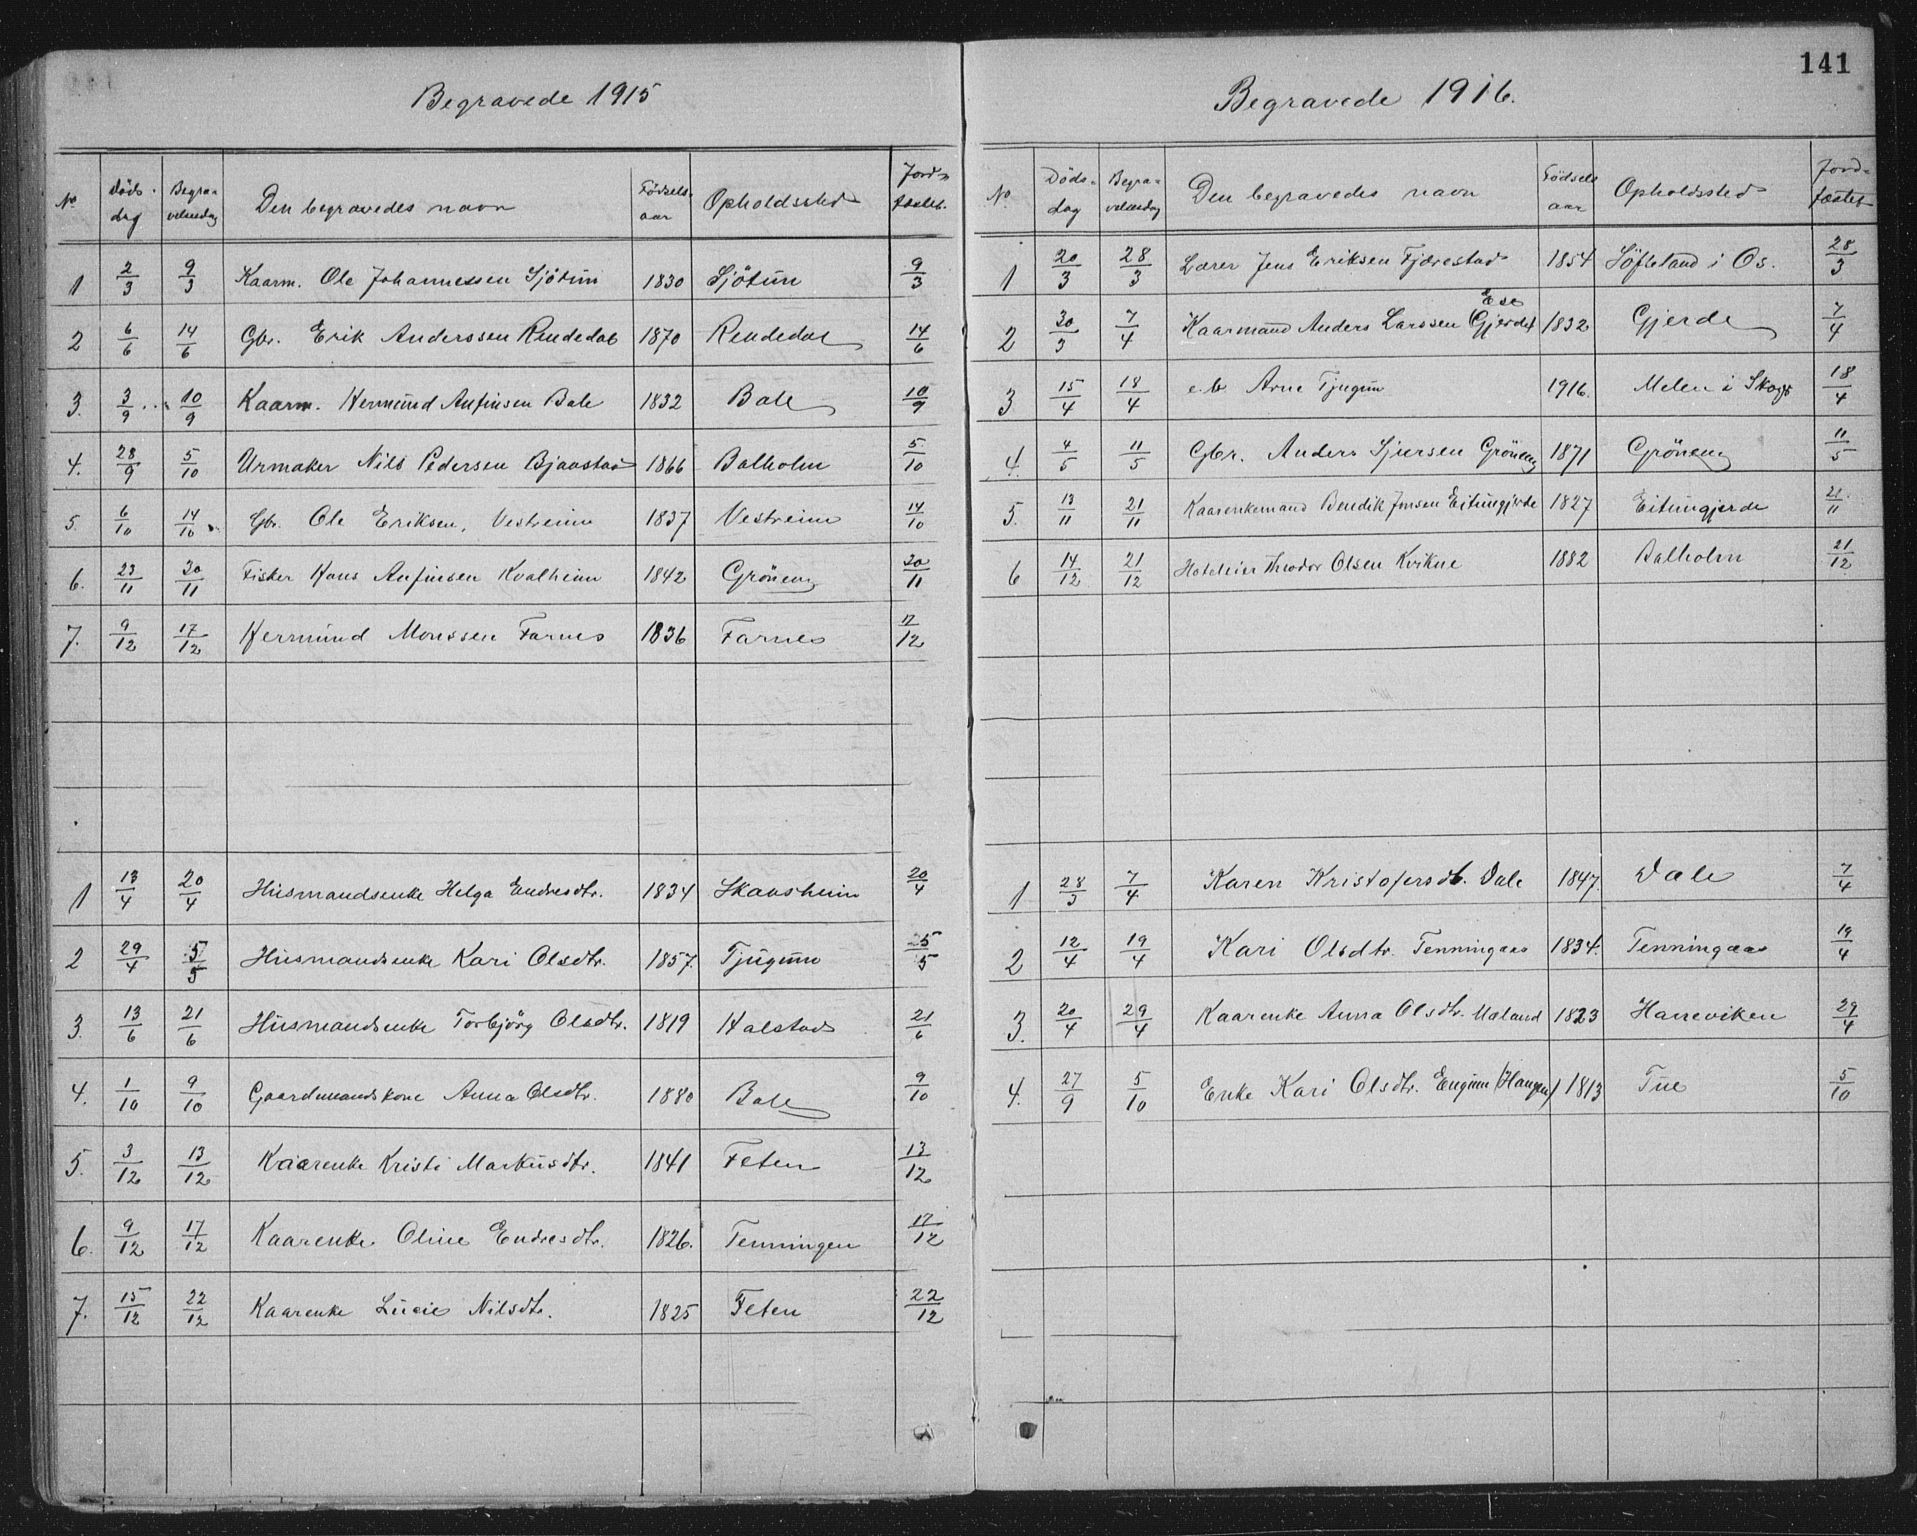 Begravede 1915
No. Døds-dag Begra-velsesdag Den begravedes navn Fødsels-aar Opholdssted Jord-fæstet.
1 2/3 9/3 Kaarm. Ole Johannessen Sjötun 1830 Sjötun 9/3
2 6/6 14/6 Gbr. Erik Anderssen Rendedal 1870 Rendedal 14/6
3. 3/9 10/9 Kaarm. Hermund Anfinsen Bale 1832 Bale 10/9
4. 28/9 5/10 Urmaker Nils Pedersen Bjaastad 1866 Balholm 5/10
5. 6/10 14/10 Gbr. Ole Eriksen, Vestreim 1837 Vestreim 14/10
6. 23/11 30/11 Fisker Hans Anfinsen Kvalheim 1842 Gröneng 30/11
7. 9/12 17/12 Hermund Monssen Farnes 1836 Farnes 17/12
1 13/4 20/4 Husmandsenke Helga Endresdtr. 1834 Skaasheim 20/4
2 29/4 5/5 Husmandsenke Kari Olsdtr. 1857. Tjugum 5/5
3. 13/6 21/6 Husmandsenke Torbjörg Olsdtr. 1819 Halstad 21/6
4. 1/10 9/10 Gaardmandskone Anna Olsdtr. 1880 Bale 9/10
5. 3/12 13/12 Kaarenke Kristi Markusdtr. 1841 Feten 13/12
6. 9/12 17/12 Kaarenke Oline Endresdtr. 1826. Tenningen 17/12
7. 15/12 22/12 Kaarenke Lucie Nilsdtr. 1825 Feten 22/12
141
Begravede 1916.
No. Døds-dag Begra-velsesdag Den begravedes navn Fødsels aar Opholdssted Jord-fæstet
1 20/3 28/3 Lærer Jens Eriksen Fjærestad 1854 Söfteland i Os. 28/3
Ese
2 30/3 7/4 Kaarmand Anders Larssen Gjerde 1832 Gjerde 7/4
3 15/4 18/4 e.b. Arne Tjugum 1916. Melen i 18/4
4. 4/5 11/5 Gbr. Anders Sjursen Gröneng 1871 Gröneng 11/5
5. 13/11 21/11 Kaarenkemand Bendik Jensen Eitungjerde 1827 Eitungjerde 21/11
6 14/12 21/12 Hoteleier Theodor Olsen Kvikne 1882 Balholm 21/12
1 28/3 7/4 Karen Kristofersdt. Dale 1847. Dale 7/4
2 12/4 19/4 Kari Olsdtr. Tenningaas 1834. Tenningaas 19/4
3. 20/4 29/4 Kaarenke Anna Olsdtr. Maland 1823 Hanevíken 29/4
4. 27/9 5/10 Enke Kari Olsdtr. Engum (Haugen) 1813 Tue 5/10